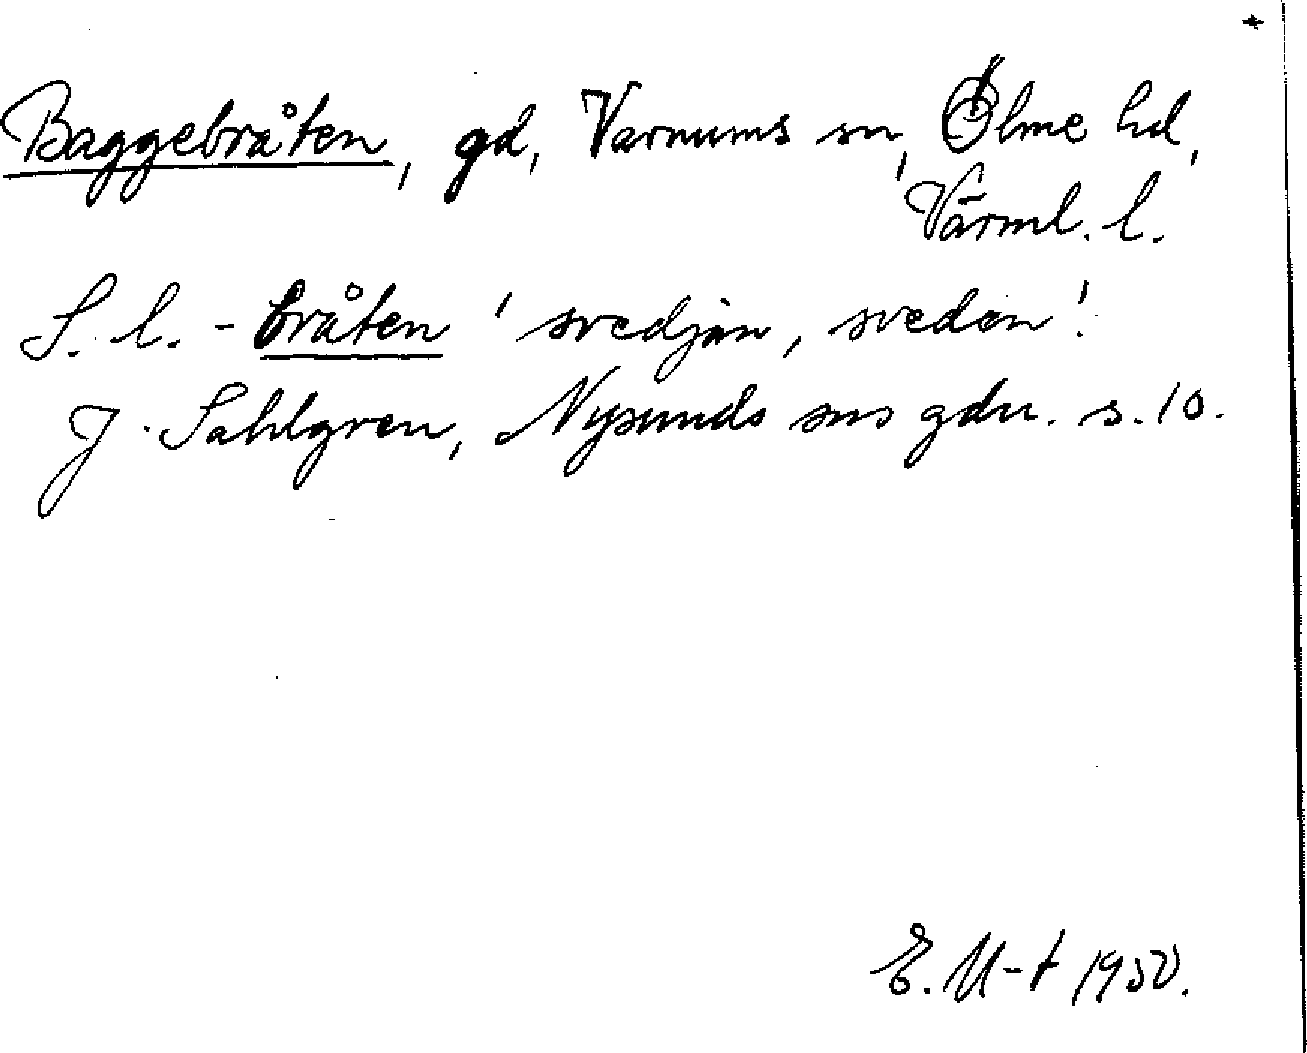 Baggebråten, gd, Varnums sn, Ölme hd,
Värml. l.
S. l. -bråten 'svedjan, sveden'.
J. Sahlgren, Nysunds sns gdn. s. 10.
E. M-t 1950.